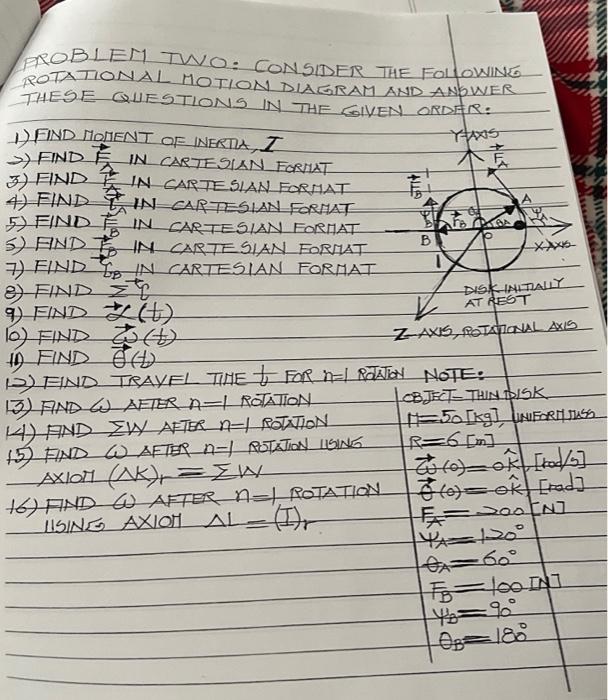 PROBLEM TWO: CONSIDER THE FOLLOWING
ROTATIONAL MOTION DIAGRAM AND ANSWER
THESE QUESTIONS IN THE GIVEN ORDER:
1) FIND MOMENT OF INERTIA, I
2) FIND F⃗_A IN CARTESIAN FORMAT
3) FIND IN CARTESIAN FORMAT
4) FIND IN CARTESIAN FORMAT
5) FIND IN CARTESIAN FORMAT
6) FIND IN CARTESIAN FORMAT
7) FIND IN CARTESIAN FORMAT
8) FIND Στ⃗
9) FIND α⃗(t)
10) FIND ω⃗(t)
11) FIND θ⃗(t)
12) FIND TRAVEL TIME t FOR n=1 ROTATION
13) FIND ω AFTER n=1 ROTATION
14) FIND ΣW AFTER n=1 ROTATION
15) FIND ω AFTER n=1 ROTATION USING
AXIOM (ΔK)r = ΣW
16) FIND ω AFTER n=1 ROTATION
USING AXIOM ΔL=(I)r
Y-AXIS
F⃗_A
F⃗_B
A
B
θA
X-AXIS
DISK INITIALLY
AT REST
Z-AXIS, ROTATIONAL AXIS
NOTE:
OBJECT=THIN DISK
M=50[kg], UNIFORM MASS
R=6[m]
ω⃗(0)=0k̂, [rad/s]
θ⃗(0)=0k̂, [rad]
FA=200[N]
ΨA=120°
θA=60°
FB=100[N]
ΨB=90°
θB=180°